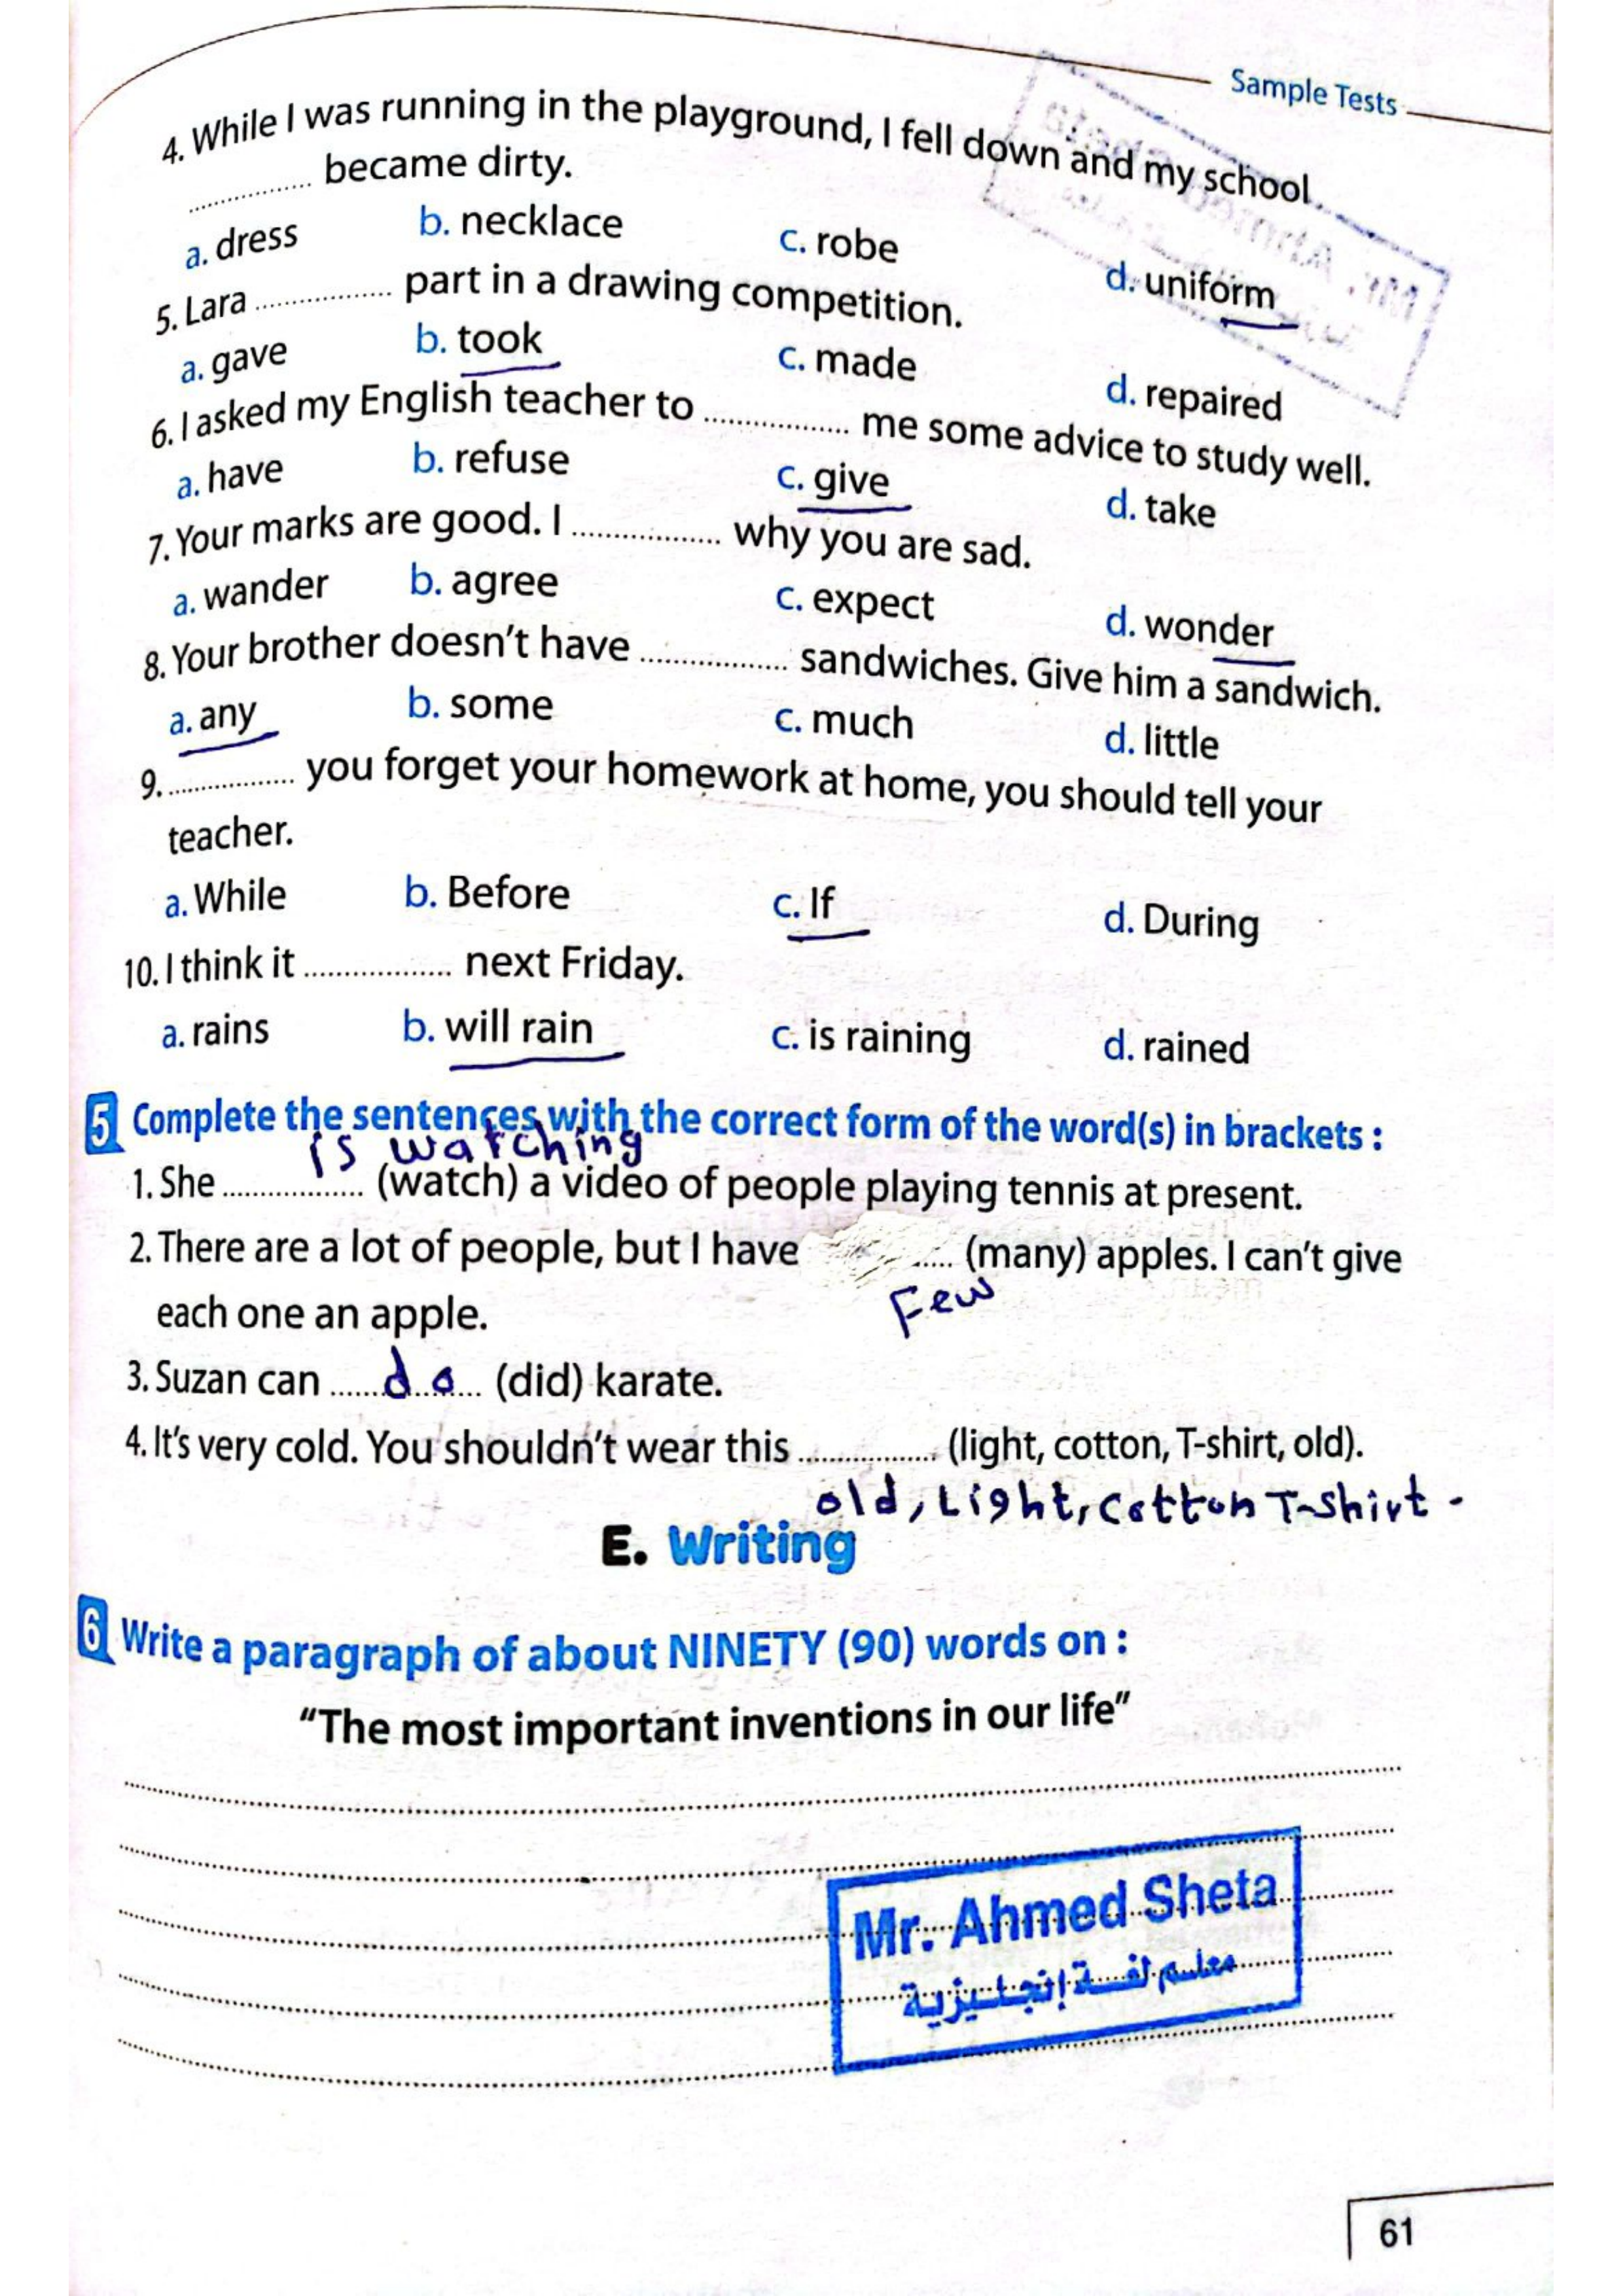 Sample Tests
4. While I was running in the playground, I fell down and my school
................ became dirty.
a. dress b. necklace c. robe d. uniform
5. Lara ................. part in a drawing competition.
a. gave b. took c. made d. repaired
6. I asked my English teacher to ................. me some advice to study well.
a. have b. refuse c. give d. take
7. Your marks are good. I ................. why you are sad.
a. wander b. agree c. expect d. wonder
8. Your brother doesn't have ................. sandwiches. Give him a sandwich.
a. any b. some c. much d. little
9. ................ you forget your homework at home, you should tell your
teacher.
a. While b. Before c. If d. During
10. I think it ................. next Friday.
a. rains b. will rain c. is raining d. rained
5 Complete the sentences with the correct form of the word(s) in brackets :
is watching
1. She ................. (watch) a video of people playing tennis at present.
2. There are a lot of people, but I have ..... (many) apples. I can't give
Few
each one an apple.
3. Suzan can ...... do ... (did) karate.
4. It's very cold. You shouldn't wear this ................ (light, cotton, T-shirt, old).
old, Light, Cotton T-shirt -
E. Writing
6 Write a paragraph of about NINETY (90) words on :
"The most important inventions in our life"
Mr. Ahmed Sheta
معلم لغة إنجليزية
61